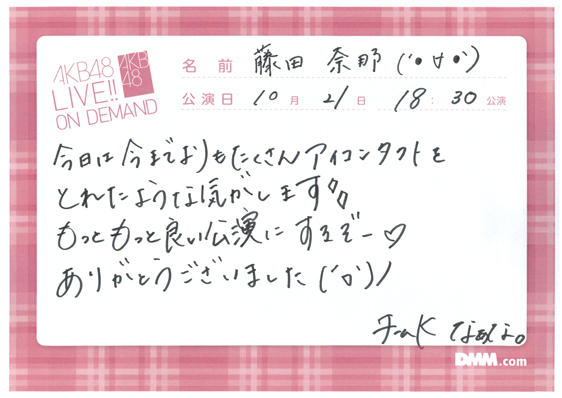 AKB48
LIVE!!
ON DEMAND
AKB
48
名前 藤田 奈那 ('•ㅂ•')
公演日 10月21日 18:30公演
今日は今までよりもたくさんアイコンタクトを
とれたような気がします
もっともっと良い公演にするぞー♡
ありがとうございました('▽')ノ
チームK なぁな。
DMM.com